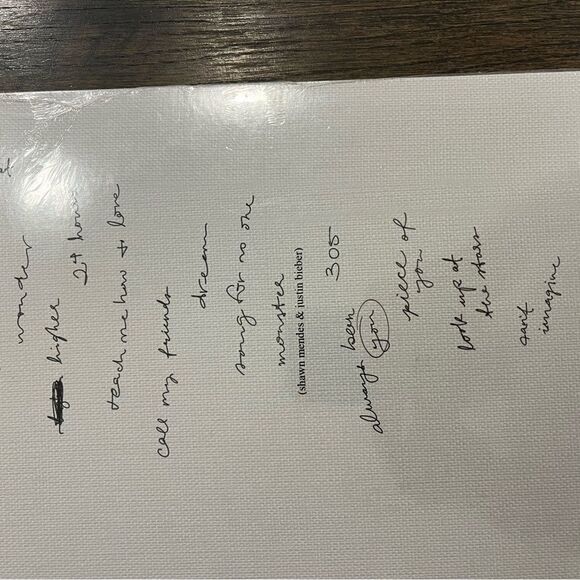 wonder
higher
24 hours
teach me how to love
call my friends
dream
song for no one
monster
(shawn mendes & justin bieber)
305
always been
you
piece of
you
look up at
the stars
can't
imagine